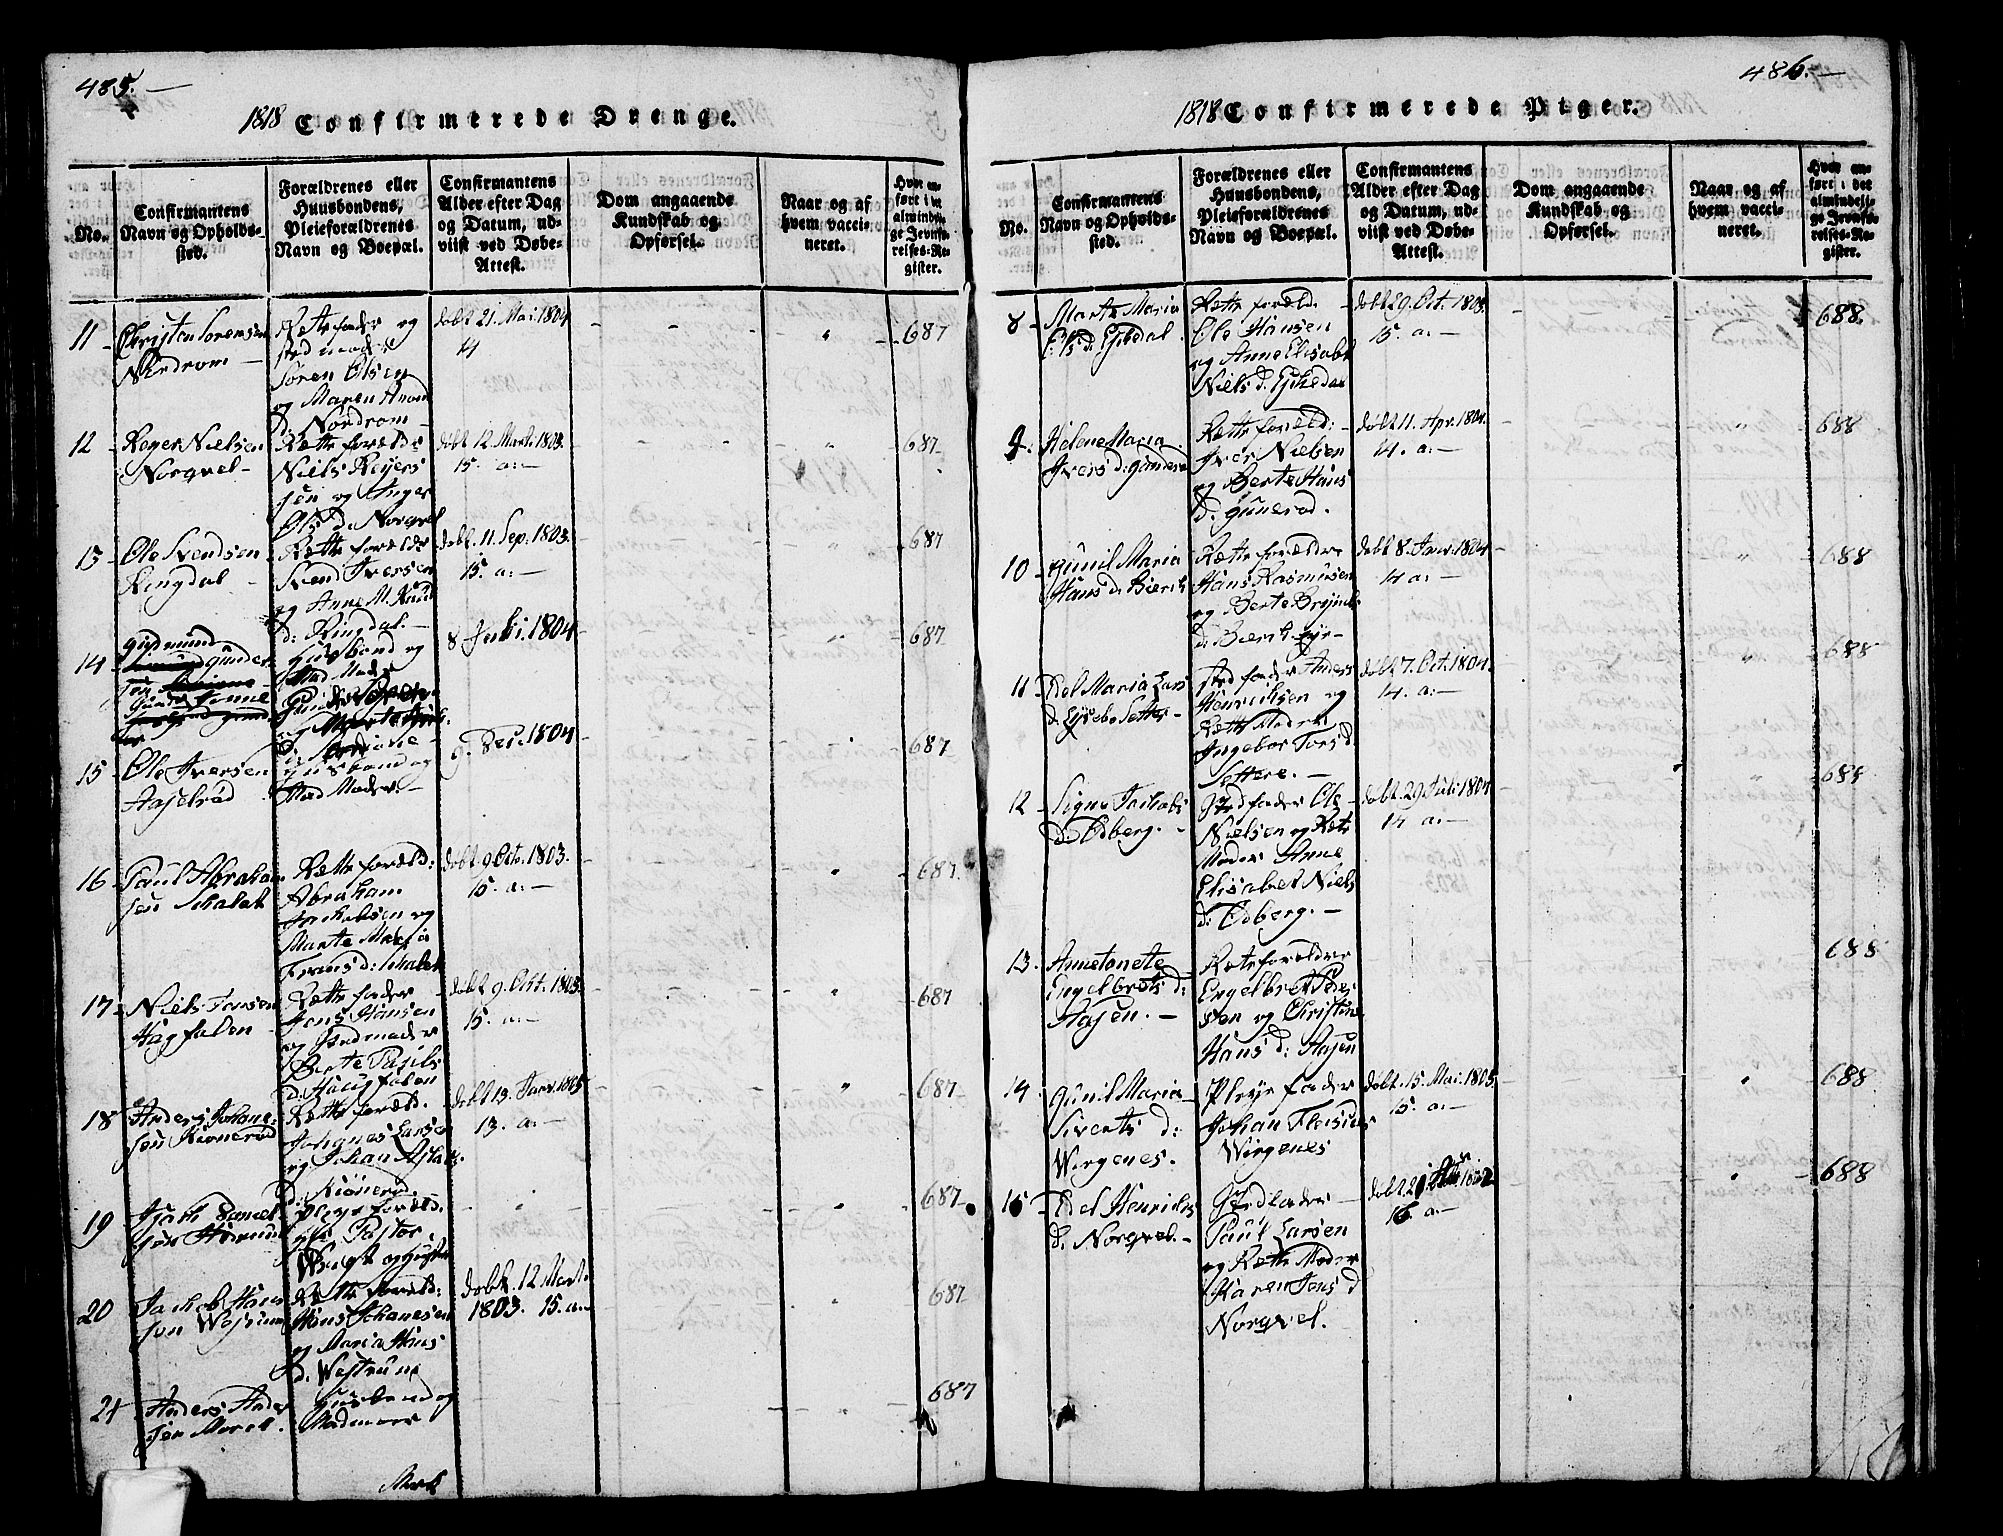 485.—
1818 Confirmerede Drenge.
No.
Confirmantens
Navn og Opholds-
sted.
Forældrenes eller
Huusbondens,
Pleieforældrenes
Navn og Boepæl.
Confirmantens
Alder efter Dag
og Datum, ud-
viist ved Døbe-
Attest.
Dom angaaende
Kundskab og
Opførsel.
Naar og af
hvem vacci-
neret.
Hvor an-
ført i det
almindeli-
ge Jevnfø-
relses-Re-
gister.
11
Christen Sorensen
Nordrom —
Rette fader og
sted moder
Søren Olsen
og Maren
d. Nordrom —
døbt 21. Mai. 1804
14
687
12
Reyer Nielsen
Norqvel —
Rette foreld:
Niels Reyers
sen og Inger
Ols d. Norqvel
døbt 12 Mart: 1803
15. a: —
687
13
Ole Svendsen
Ringdal —
Rette foreld:
Svend Iversen
og Anne M. Knud
d: Ringdal. —
døbt. 11. Sep: 1803.
15. a: —
687
14
Gudmund
Gunder
sen
Husbond og
Mad Moder
8 Juli. 1804
687
15
Ole Iversen
Aaselrød
Husbond og
Mad Moder. —
9. Dec. 1804
687
16
Paul Abraham
sen Skalak
Rette foreld:
Abraham
Jachobsen og
Marte Maria
Frans d: Skalak
døbt. 9 Oct. 1803.
15. a: —
687
17
Niels Jensen
Hagfalen
Rette fader
Jens Hansen
og Stedmoder
Berte Pauls
d: Haugfalen
døbt 9. Oct. 1803.
15. a: —
687
18
Anders Johane
sen Kionerød
Rette foreld.
Johanes Larsen
og Johan
d: Kiönerød.
døbt 13. Janv. 1805
13. a: —
687
19
Daniel
sen
Pleye foreld.
Pastor
687
20
Jachob Hans
sen Westrum
Rette foreld:
Hans Johanesen
og Maria Hans
d. Westrum
døbt. 12. Mart.
1803. 15. a: —
687
21
Anders Ander
sen
Husbond og
Madmoer
687
486. —
1818 Confirmerede Piger.
No.
Confirmantens
Navn og Opholds-
sted.
Forældrenes eller
Huusbondens,
Pleieforældrenes
Navn og Boepæl.
Confirmantens
Alder efter Dag
og Datum, ud-
viist ved Døbe-
Attest.
Dom angaaende
Kundskab og
Opførsel.
Naar og af
hvem vacci-
neret.
Hvor an-
ført i det
almindeli-
ge Jevnfø-
relses-Re-
gister.
8
Marte Maria
Ols d. Eskedal
Rette foreld.
Ole Hansen
og Anne Elisabet
Niels d. Eskedal
døbt 29. Oct. 1803.
15. a: —
688
9.
Helene Maria
Ivers d: Gunerød
Rette foreld:
Iver Nielsen
og Berte Hans
d. Gunerød.
døbt 11. Apr. 1804.
14. a: —
688
10
Gunil Maria
Hans d: Bierk
Rette foreldre
Hans Rasmusen
og Berte
døbt 8. Janv. 1804
14 a: —
688
11
Edel Maria Lars
d.
sted fader Anders
Henrichsen og
Rette Moder
Ingebor Tors d.
Settere. —
døbt 7. Oct. 1804.
14. a: —
688
12
Signe Jachobs
d: Edberg. —
Stedfader Ole
Nielsen og Rette
Moder Anne
Elisabet Niels
d: Edberg. —
døbt. 29. Juli: 1804
14 a: —
688
13.
Annetonete
Engelbrets d:
Aasen. —
Retteforeldre
Engelbret Peder
sen og Christine
Hans d: Aasen
688
14
Gunil Maria
Siverts d:
Wirgenes.
Pleye fader
Johan Fleischer
Wirgenes
døbt. 15. Mai. 1803.
15. a: —
688
15
Edel Henrichs
d. Norqvel. —
Stedfader
Paul Larsen
og Rette Moder
Karen Jens d
Norqvel.
16. a: —
688